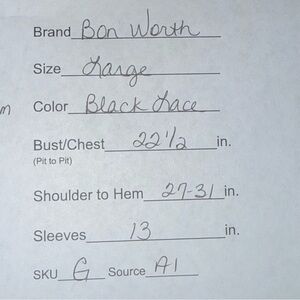 Brand Bon Worth
Size Large
m Color Black Lace
Bust/Chest 22 1/2 in.
(Pit to Pit)
Shoulder to Hem 27-31 in.
Sleeves 13 in.
SKU G Source A1